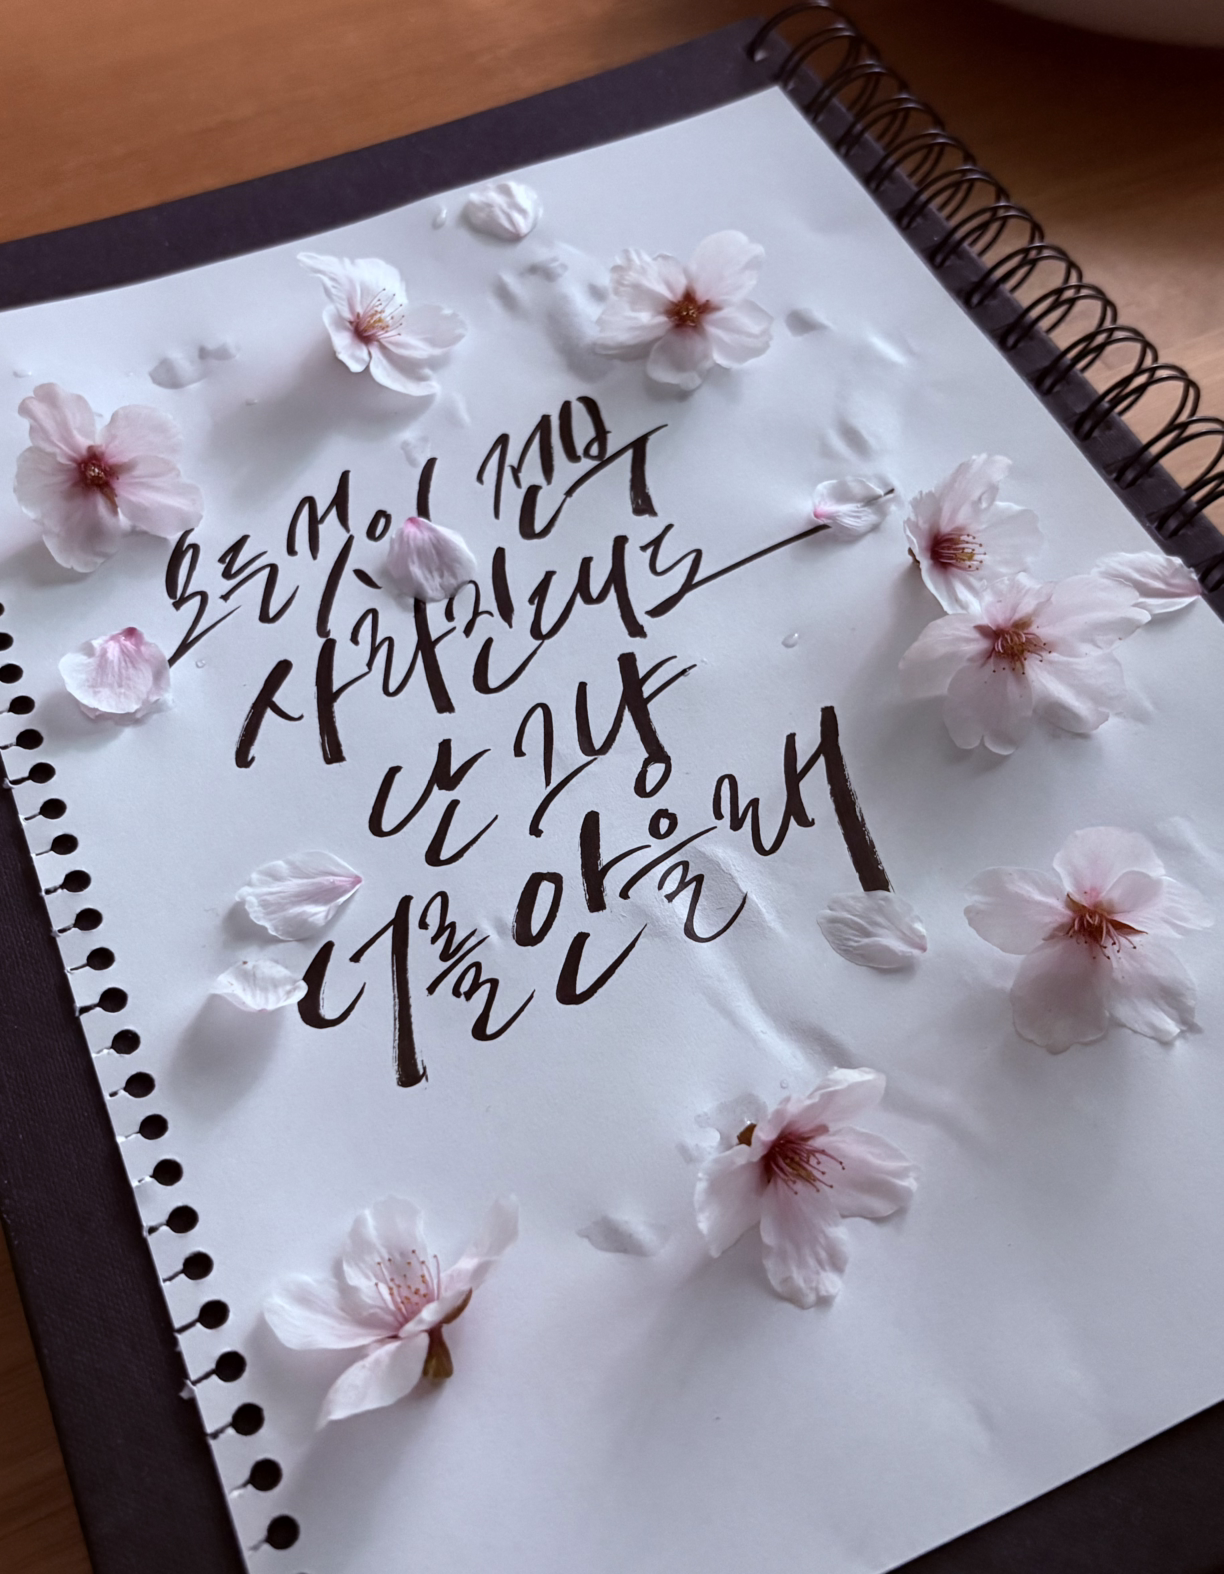 모든 것이 전부
사라진대도
난 그냥
너를 안을래